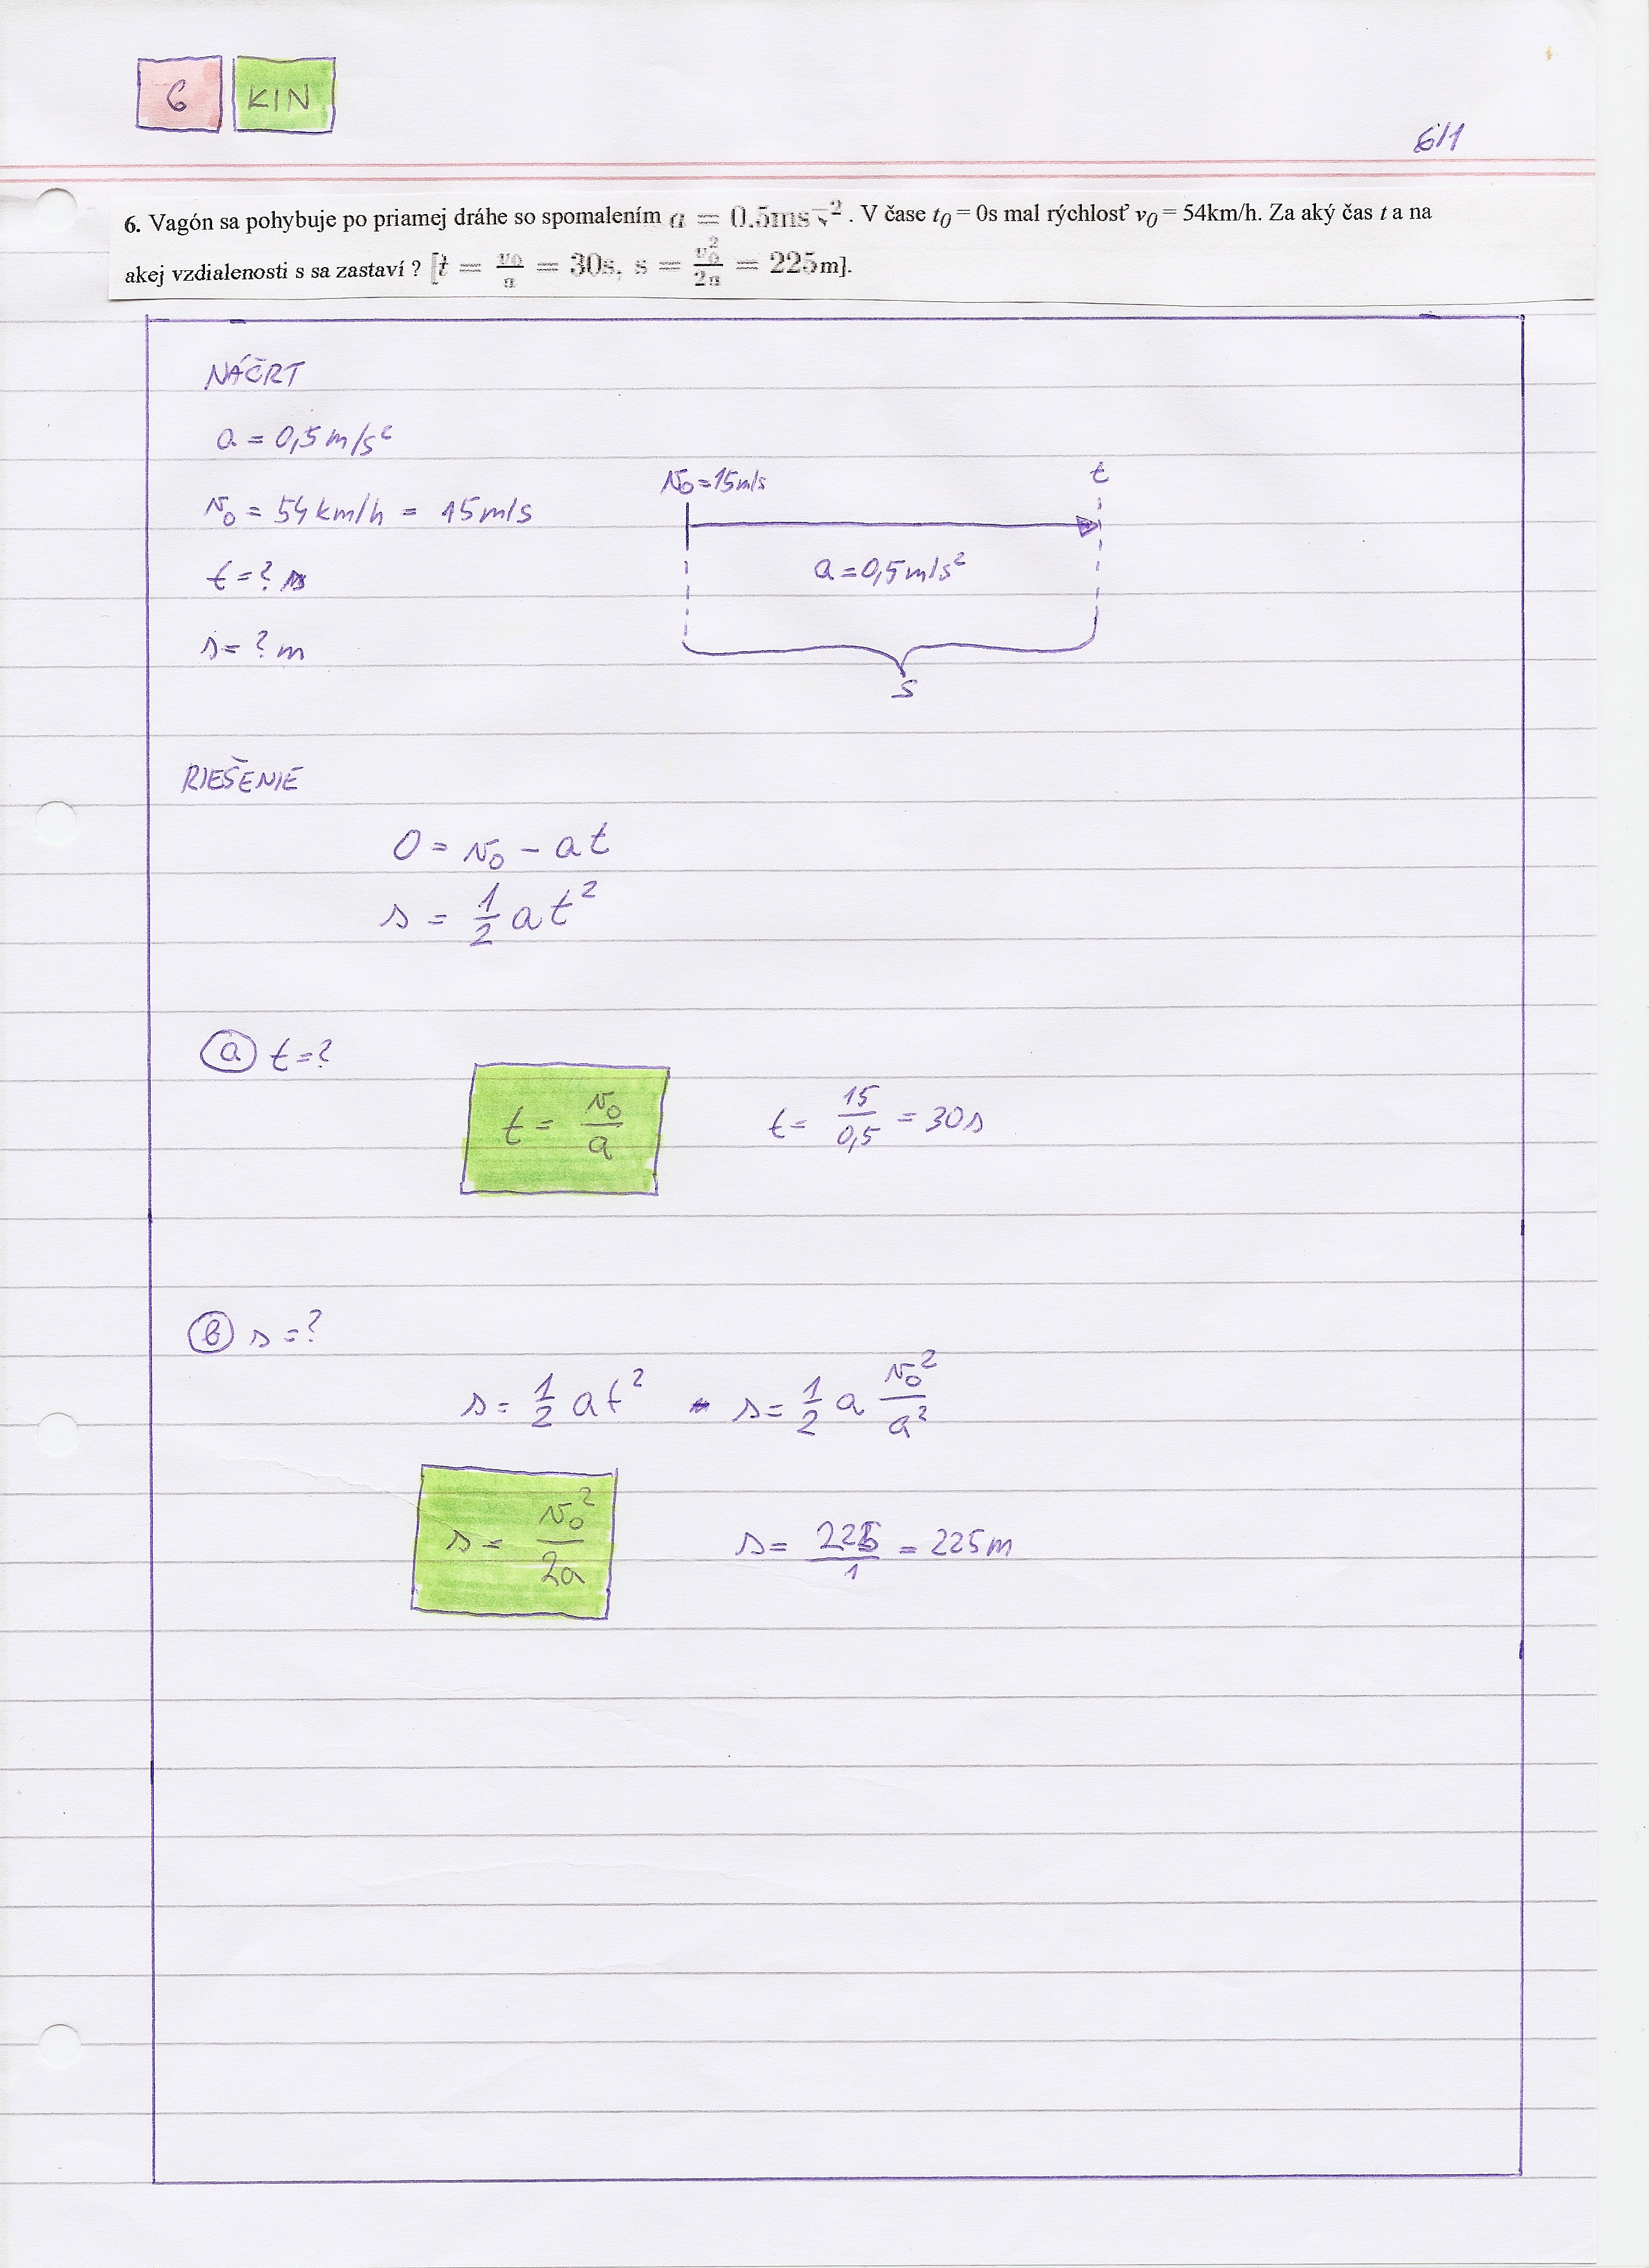 6 KIN
6/1
6. Vagón sa pohybuje po priamej dráhe so spomalením a = 0.5ms⁻². V čase t₀ = 0s mal rýchlosť v₀ = 54km/h. Za aký čas t a na
akej vzdialenosti s sa zastaví ? [t = v₀/a = 30s, s = v₀²/2a = 225m].
NÁČRT
a = 0,5 m/s²
v₀ = 54 km/h = 15 m/s
t = ? s
s = ? m
v₀ = 15 m/s
t
a = 0,5 m/s²
s
RIEŠENIE
0 = v₀ - at
s = 1/2 at²
a t = ?
t = v₀/a t = 15/0,5 = 30 s
b s = ?
s = 1/2 at² s = 1/2 a v₀²/a²
s = v₀²/2a s = 225/1 = 225 m